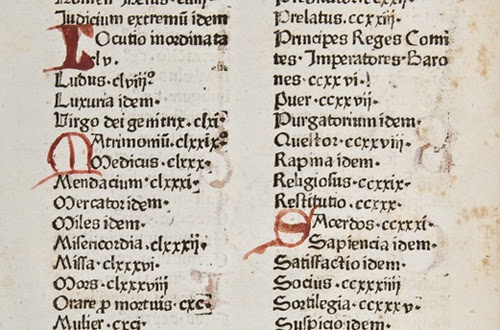 Judicium extremũ idem
Locutio inordinata
clv.
Ludus.clviiiº
Luxuria idem.
Virgo dei genitrix.clxiº
Matrimoniũ.clxxixº
Medicus.clxxx.
Mendacium.clxxxi.
Mercator idem.
Miles idem.
Misericordia.clxxxij.
Missa.clxxxvi.
Mors.clxxxviii
Orare ꝓ mortuis.cxc.
Mulier.cxci.
Prelatus.ccxxiij.
Principes Reges Comi
tes.Imperatores.Baro
nes.ccxxvi.
Puer.ccxxvij.
Purgatorium idem.
Questor.ccxxviij.
Rapina idem.
Religiosus.ccxxix.
Restitutio.ccxxx.
Sacerdos.ccxxxi.
Sapiencia idem.
Satisfactio idem.
Socius.ccxxxiij
Sortilegia.ccxxxv.
Suspicio idem.